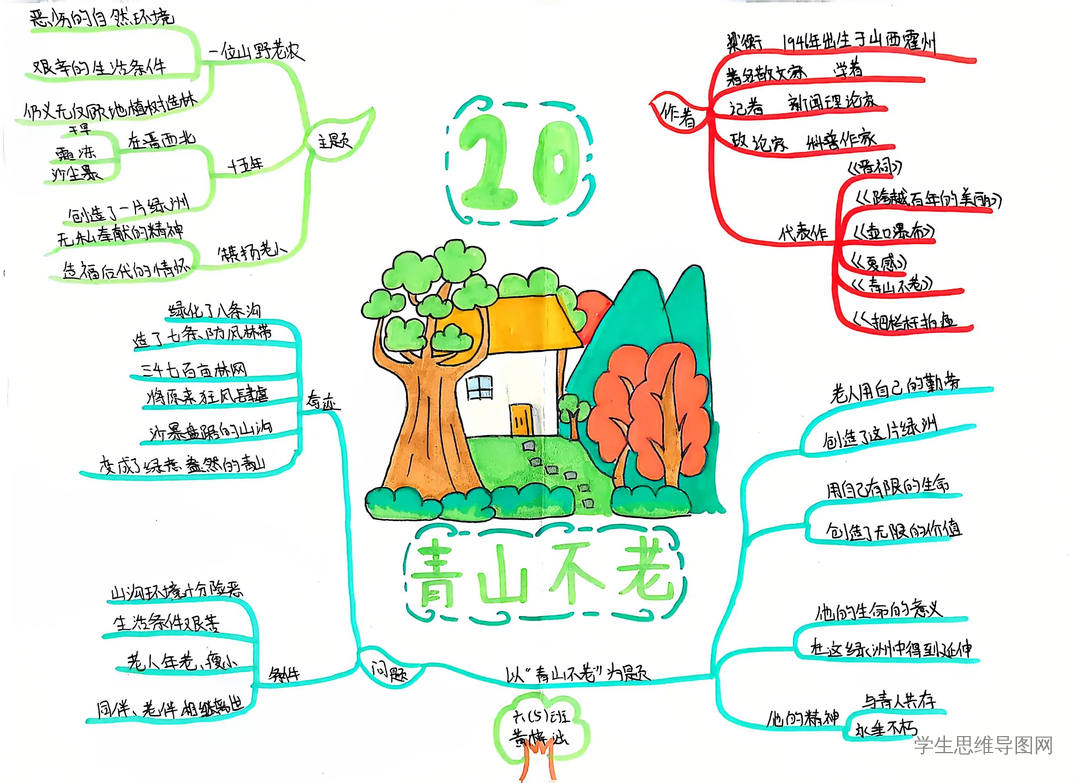 恶劣的自然环境
艰辛的生活条件
仍义无反顾地植树造林
一位山野老农
干旱
霜冻
沙尘暴
在晋西北
创造了一片绿洲
十五年
无私奉献的精神
造福后代的情怀
主题
20
作者
梁衡 1946年出生于山西霍州
著名散文家 学者
记者 新闻理论家
政论家 科普作家
代表作
《晋祠》
《跨越百年的美丽》
《壶口瀑布》
《夏感》
《青山不老》
《把栏杆拍遍
绿化了八条沟
造了七条防风林带
三千七百亩林网
将原来狂风肆虐
沙暴盘踞的山沟
变成了绿意盎然的青山
奇迹
青山不老
山沟环境十分险恶
生活条件艰苦
老人年老、瘦小
同伴、老伴相继离世
条件
问题
以“青山不老”为题
老人用自己的勤劳
创造了这片绿洲
用自己有限的生命
创造了无限的价值
他的生命的意义
在这绿洲中得到延伸
他的精神
与青人共存
永垂不朽
六(5)班
学生思维导图网